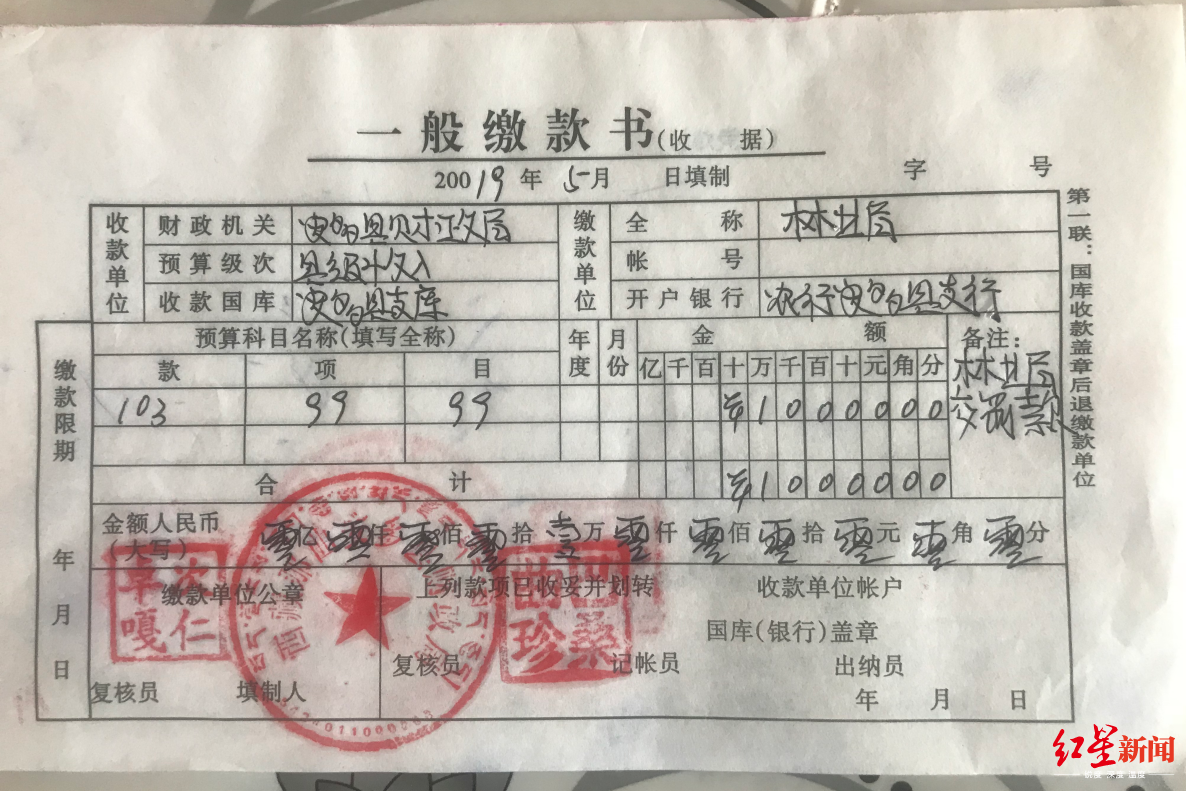 一般缴款书(收 据)
20019年 5月 日填制 字 号
收款单位
财政机关
预算级次
收款国库
缴款单位
全称 林业局
帐号
开户银行
第一联:国库收款盖章后退缴款单位
缴款限期
年 月 日
预算科目名称(填写全称) 年度 月份 金额 备注:
款 项 目 亿千百十万千百十元角分
103 99 99 ¥10000000
林业局
交罚款
合计 ¥10000000
金额人民币
(大写) 零亿零仟零佰零拾壹万零仟零佰零拾零元零角零分
缴款单位公章
上列款项已收妥并划转 收款单位帐户
国库(银行)盖章
复核员 填制人
复核员 记帐员 出纳员
年 月 日
次仁
嘎
巴桑
珍
红星新闻
锐度 深度 温度